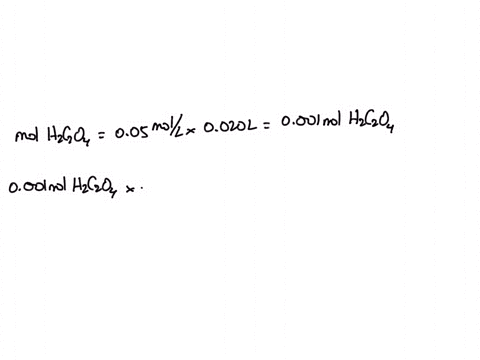 mol H₂C₂O₄ = 0.05 mol/L × 0.020L = 0.001 mol H₂C₂O₄
0.001 mol H₂C₂O₄ × .